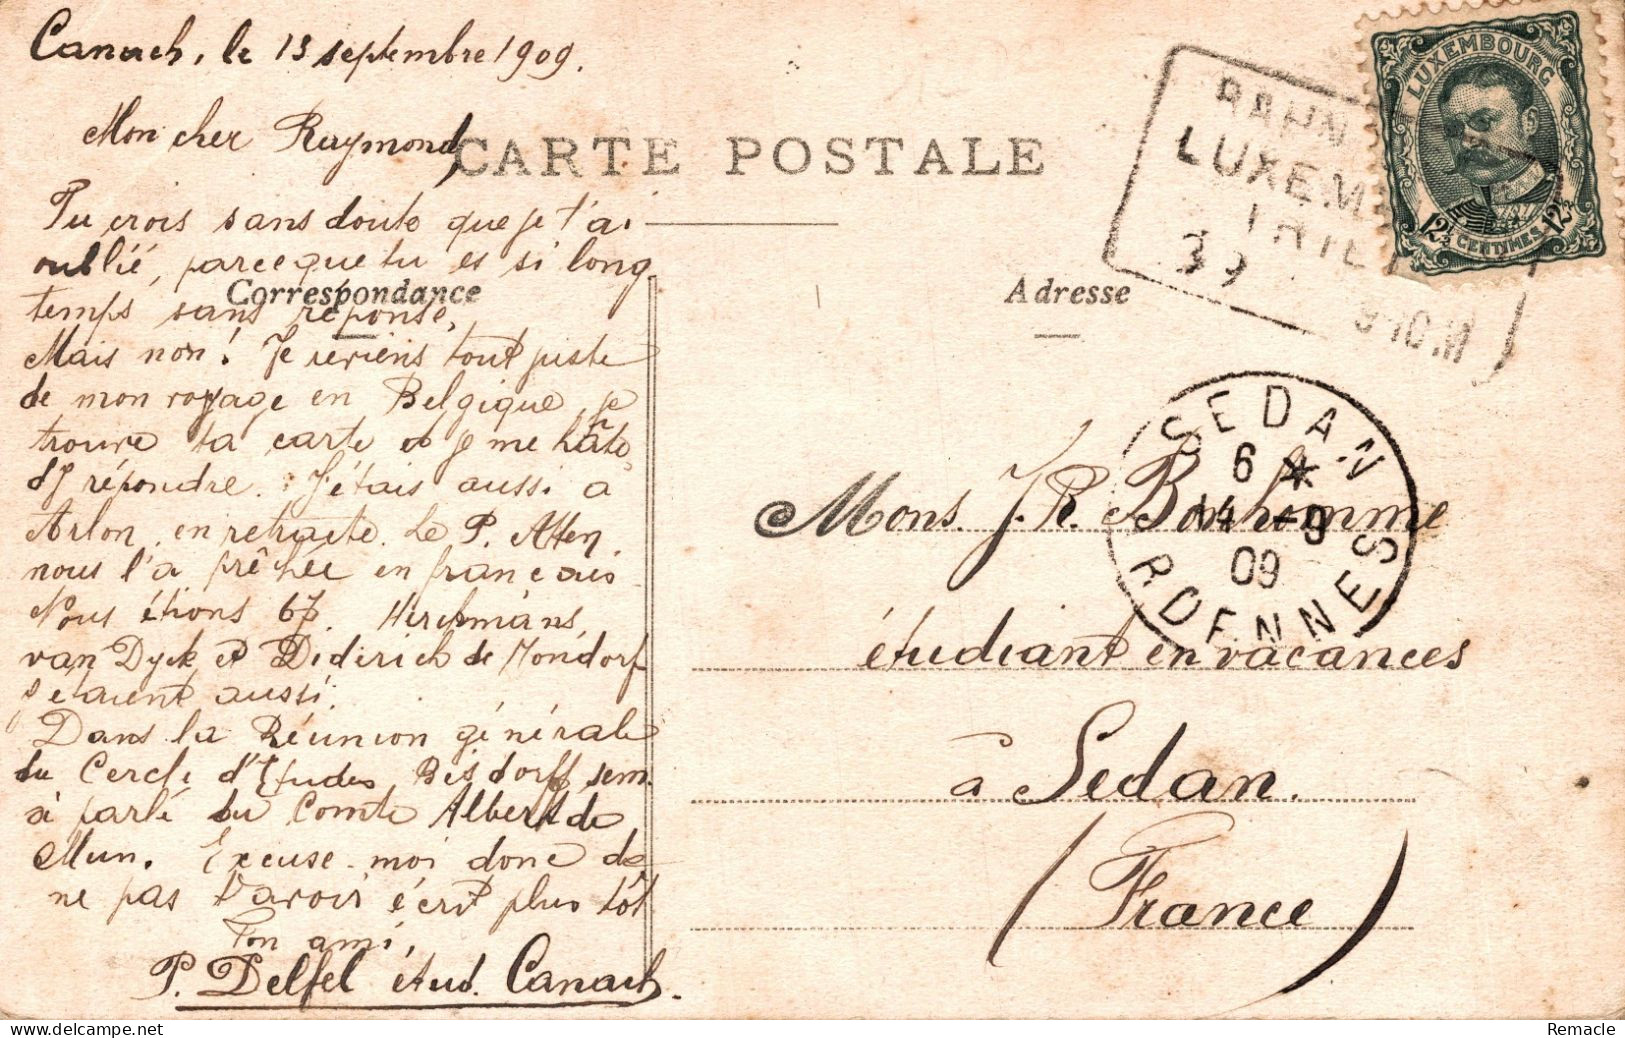 Canach, le 13 septembre 1909.
Mon cher Raymond,
CARTE POSTALE
Tu crois sans doute que je t'ai
oublié, parce que tu es si long-
temps sans réponse.
Correspondance
Mais non! Je reviens tout juste
de mon voyage en Belgique, je
trouve ta carte et je me hâte
d'y répondre. J'étais aussi à
Arlon, en retraite. Le P.
nous l'a prêchée en français.
Nous étions 67. Herckmans,
van Dyck et Diderich de Mondorf
étaient aussi.
Dans la Réunion générale
du Cercle d'Études Bisdorff sem.
a parlé du Comte Albert de
Mun. Excuse-moi donc de
ne pas t'avoir écrit plus tôt
Ton ami,
P. Delfel étud. Canach.
LUXEMBOURG
12½ CENTIMES 12½
BAHN
LUXEM
39
Adresse
SEDAN
6 *
14 -9
09
ARDENNES
Mons. J. R. Bonhomme
étudiant en vacances
à Sedan.
(France)
Remacle